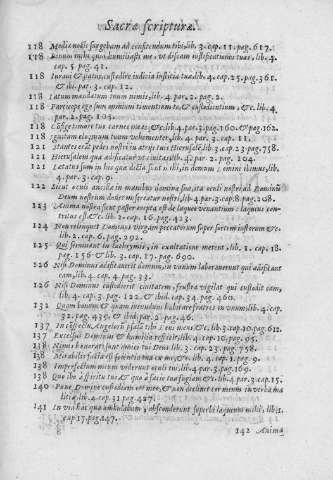 Sacræ scripturæ.
118 Media nocte surgebam ad confitendum tibi, lib. 3. cap. 11. pag. 617.
118 Bonum mihi quia humiliasti me, ut discam iustificationes tuas, lib. 4.
cap. 5. pag. 41.
118 Iuravi & statui custodire iudicia iustitiæ tuæ. lib. 4. cap. 25. pag. 361.
& ibi. par. 3. cap. 12.
118 Latum mandatum tuum nimis, lib. 4. par. 2. pag. 2.
118 Particeps ego sum omnium timentium te, & custodientium, &c. lib. 4.
par. 2. pag. 103.
118 Confige timore tuo carnes meas, lib. 4. par. 3. pag. 160. & pag. 162.
118 Ignitum eloquium tuum vehementer, lib. 4. par. 3. cap. 11.
121 Stantes erant pedes nostri in atrijs tuis Hierusalē. lib. 3. cap. 23. pag. 758.
121 Hierusalem quæ ædificatur ut civitas, lib. 4. par. 2. pag. 104.
121 Lætatus sum in his quæ dicta sunt mihi, in domum Domini ibimus, lib.
4. par. 3. cap. 9.
122 Sicut oculi ancillæ in manibus dominæ suæ, ita oculi nostri ad Dominū
Deum nostrum donec misereatur nostri, lib. 4. par. 3. cap. 8. pag. 208.
123 Anima nostra sicut passer erepta est de laqueo venantium: laqueus con-
tritus est &c. lib. 2. cap. 16. pag. 423.
124 Non relinquet Dominus virgam peccatorum super sortem iustorum &c.
lib. 2. cap. 6. pag. 292.
125 Qui seminant in lachrymis, in exultatione metent, lib. 1. cap. 18.
pag. 156. & lib. 3. cap. 17. pag. 690.
126 Nisi Dominus ædificaverit domum, in vanum laboraverunt qui ædificant
eam, lib. 4. cap. 4. pag. 33.
126 Nisi Dominus custodierit civitatem, frustra vigilat qui custodit eam,
lib. 4. cap. 3. pag. 122. & ibid. cap. 34. pag. 460.
132 Quam bonum & quam iucundum habitare fratres in unum, lib. 4. cap.
32. pag. 439. & ibid. par. 2. pag. 46.
137 In conspectu Angelorū psallā tibi Deus meus, &c. lib. 3. cap. 10. pag. 612.
137 Excelsus Dominus & humilia respicit, lib. 4. cap. 10. pag. 95.
138 Nimis honorati sunt amici tui Deus lib. 3. cap. 23. pag. 758.
138 Mirabilis facta est scientia tua ex me, &c. lib. 4. cap. 1. pag. 9.
138 Imperfectum meum viderunt oculi tui, lib. 4. par. 3. pag. 169.
138 Quo ibo à spiritu tuo & quo à facie tua fugiam &c. lib. 4. par. 3. cap. 15.
140 Pone Domine custodiam ori meo, & non declines cor meum in verba ma
litiæ, lib. 4. cap. 31. pag. 427.
141 In via hac qua ambulabam, absconderunt superbi laqueum mihi, lib. 1.
cap. 17. pag. 147.
142 Anima